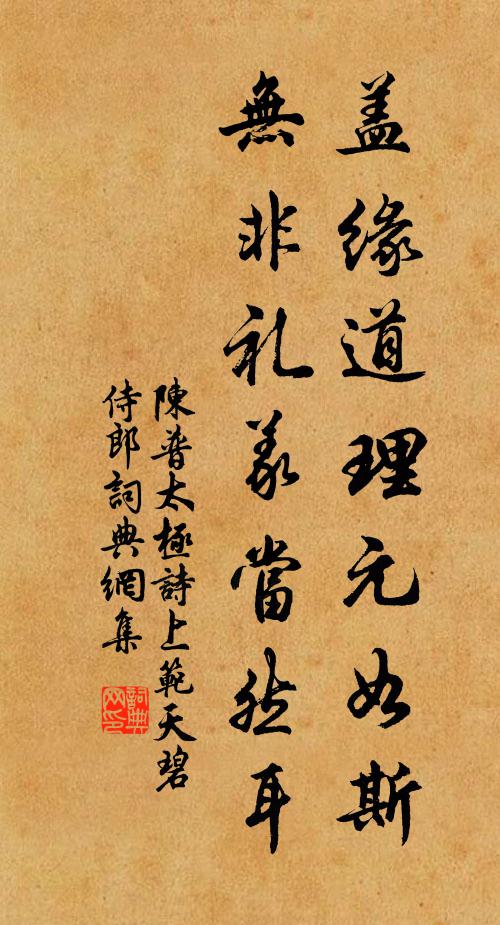 盖缘道理元如斯
無非礼義當然耳
陳普太極詩上範天碧
侍郎詞典網集
詞典網印